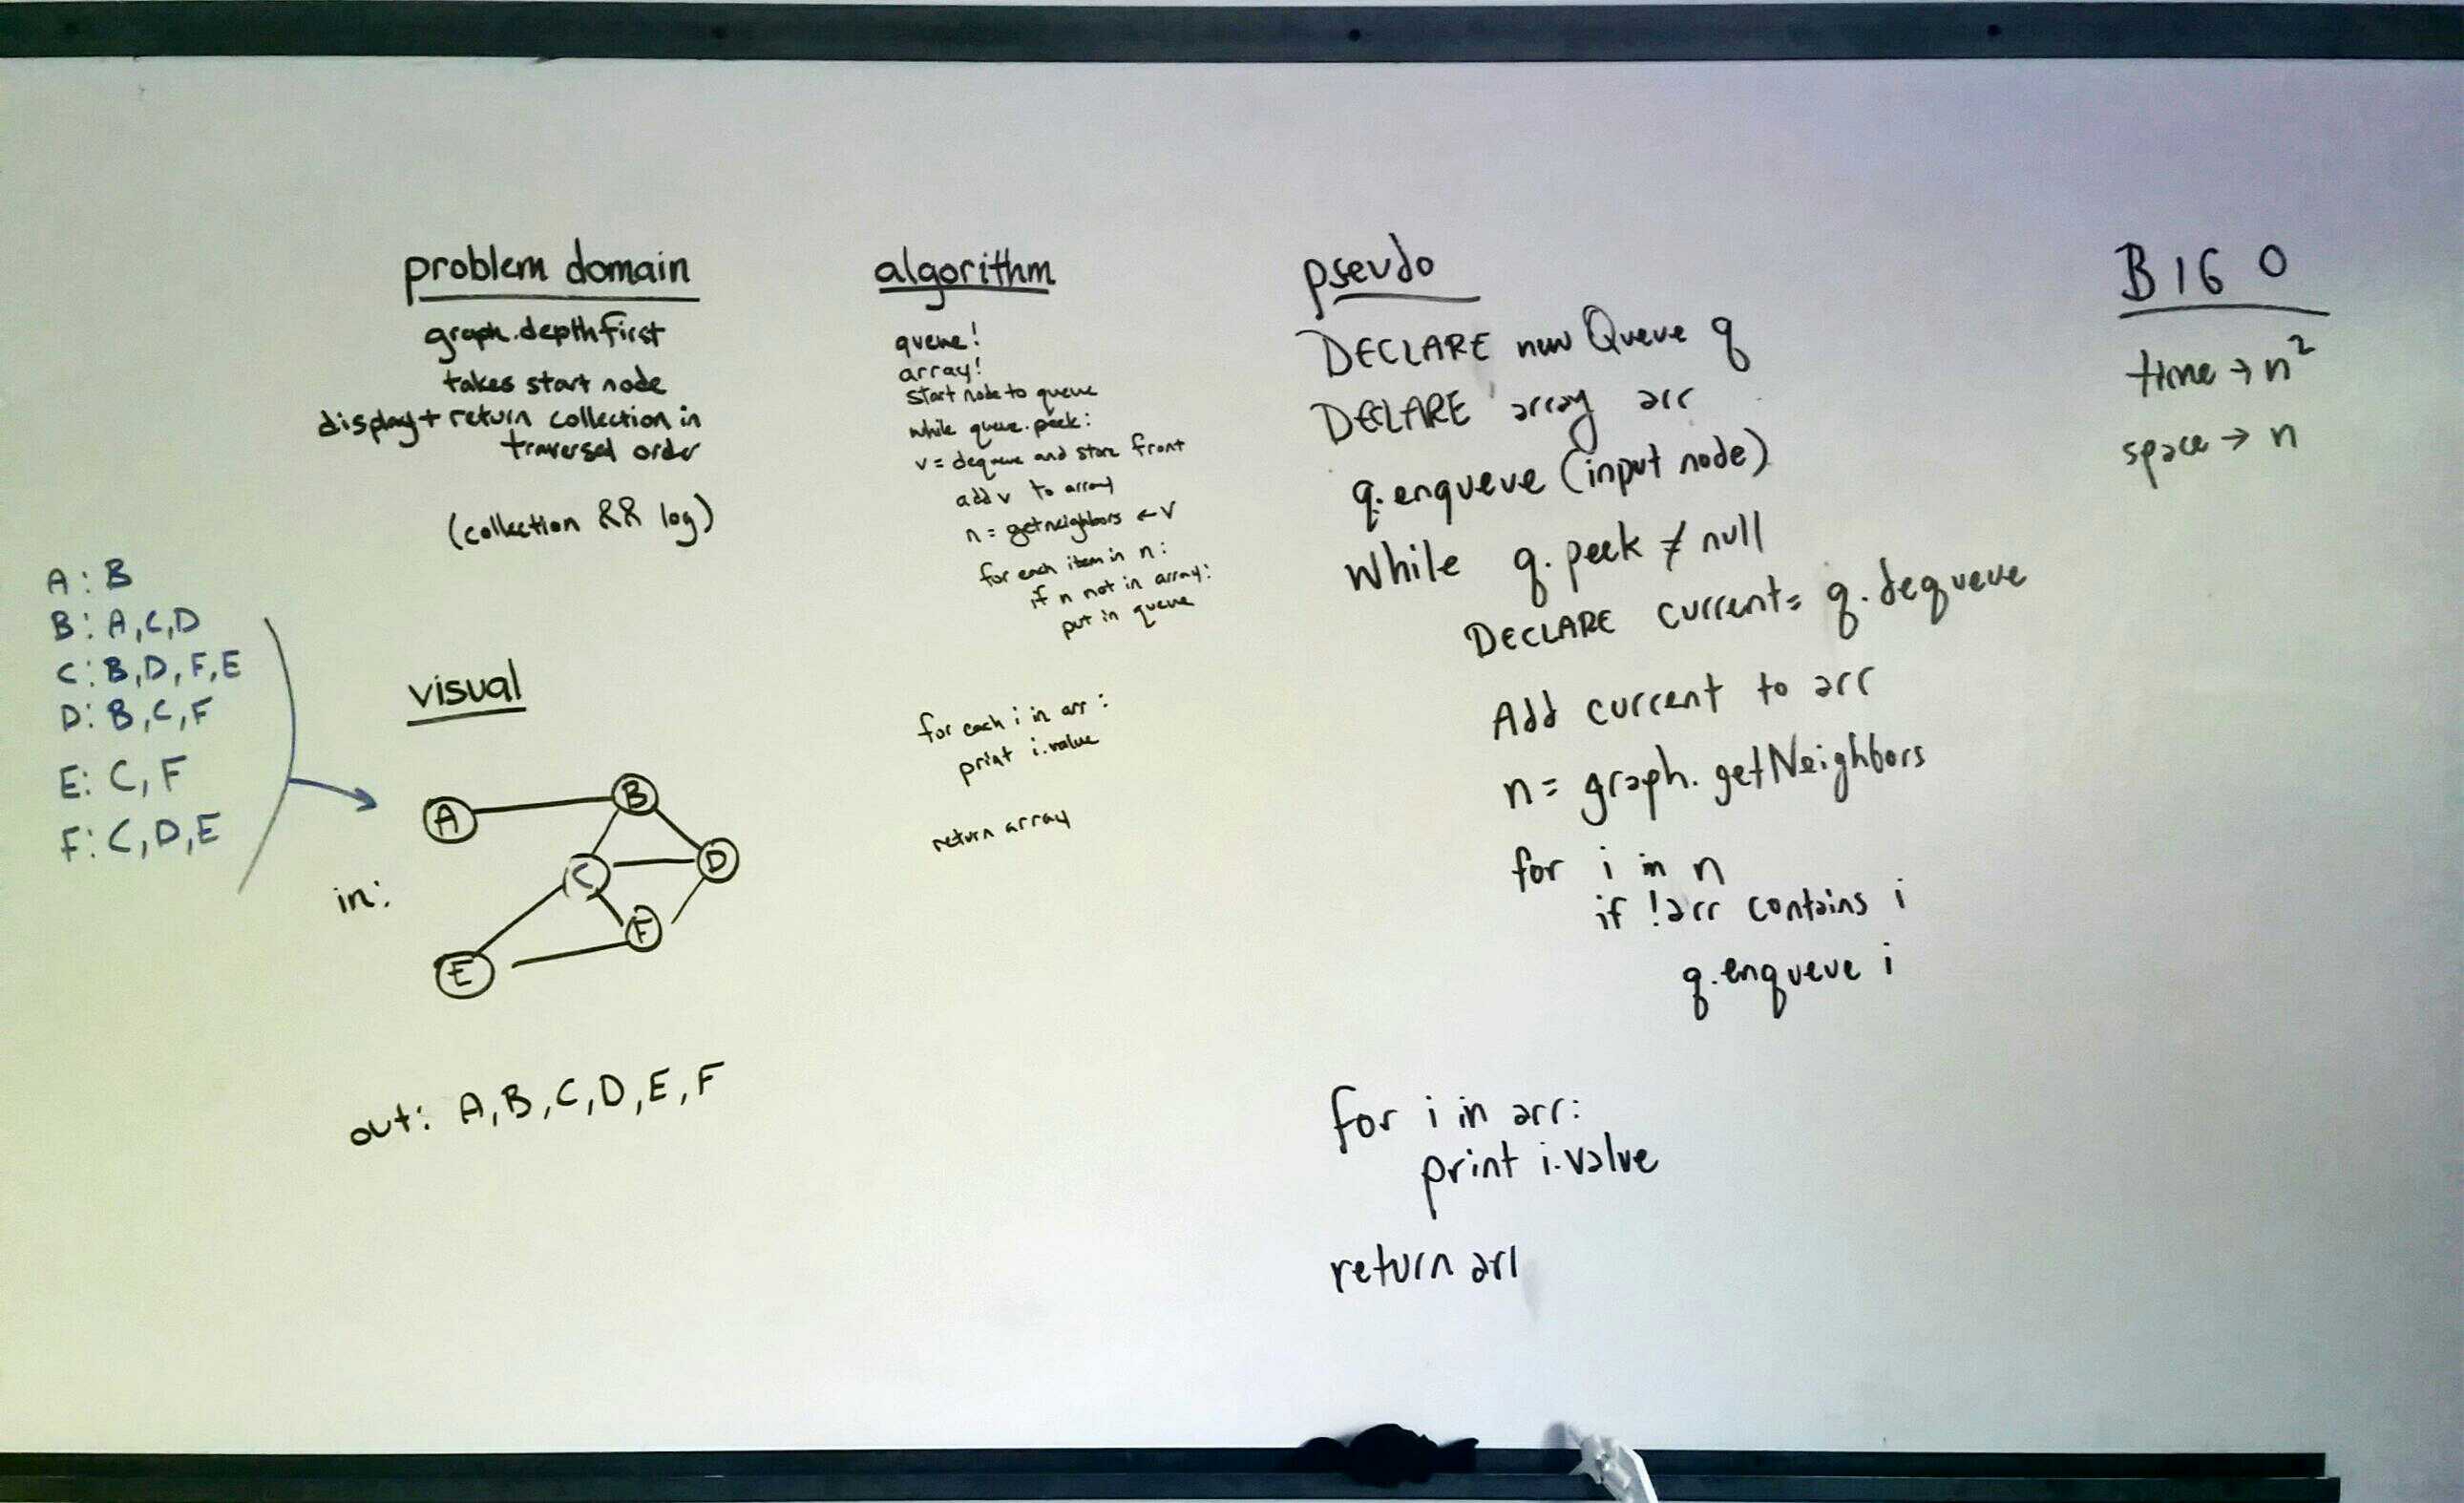 problem domain
graph.depthfirst
takes start node
display + return collection in
traversal order
(collection && log)
A: B
B: A,C,D
C: B,D,F,E
D: B,C,F
E: C,F
F: C,D,E
visual
in:
A
B
C
D
F
E
out: A,B,C,D,E,F
algorithm
queue!
array!
start node to queue
while queue.peek:
v = dequeue and store front
add v to array
n = getneighbors ← v
for each item in n:
if n not in array:
put in queue
for each i in arr:
print i.value
return array
pseudo
DECLARE new Queue q
DECLARE array arr
q.enqueue (input node)
While q.peek ≠ null
DECLARE current= q.dequeue
Add current to arr
n= graph.getNeighbors
for i in n
if !arr contains i
q.enqueue i
for i in arr:
print i.value
return arr
BIG O
time → n²
space → n